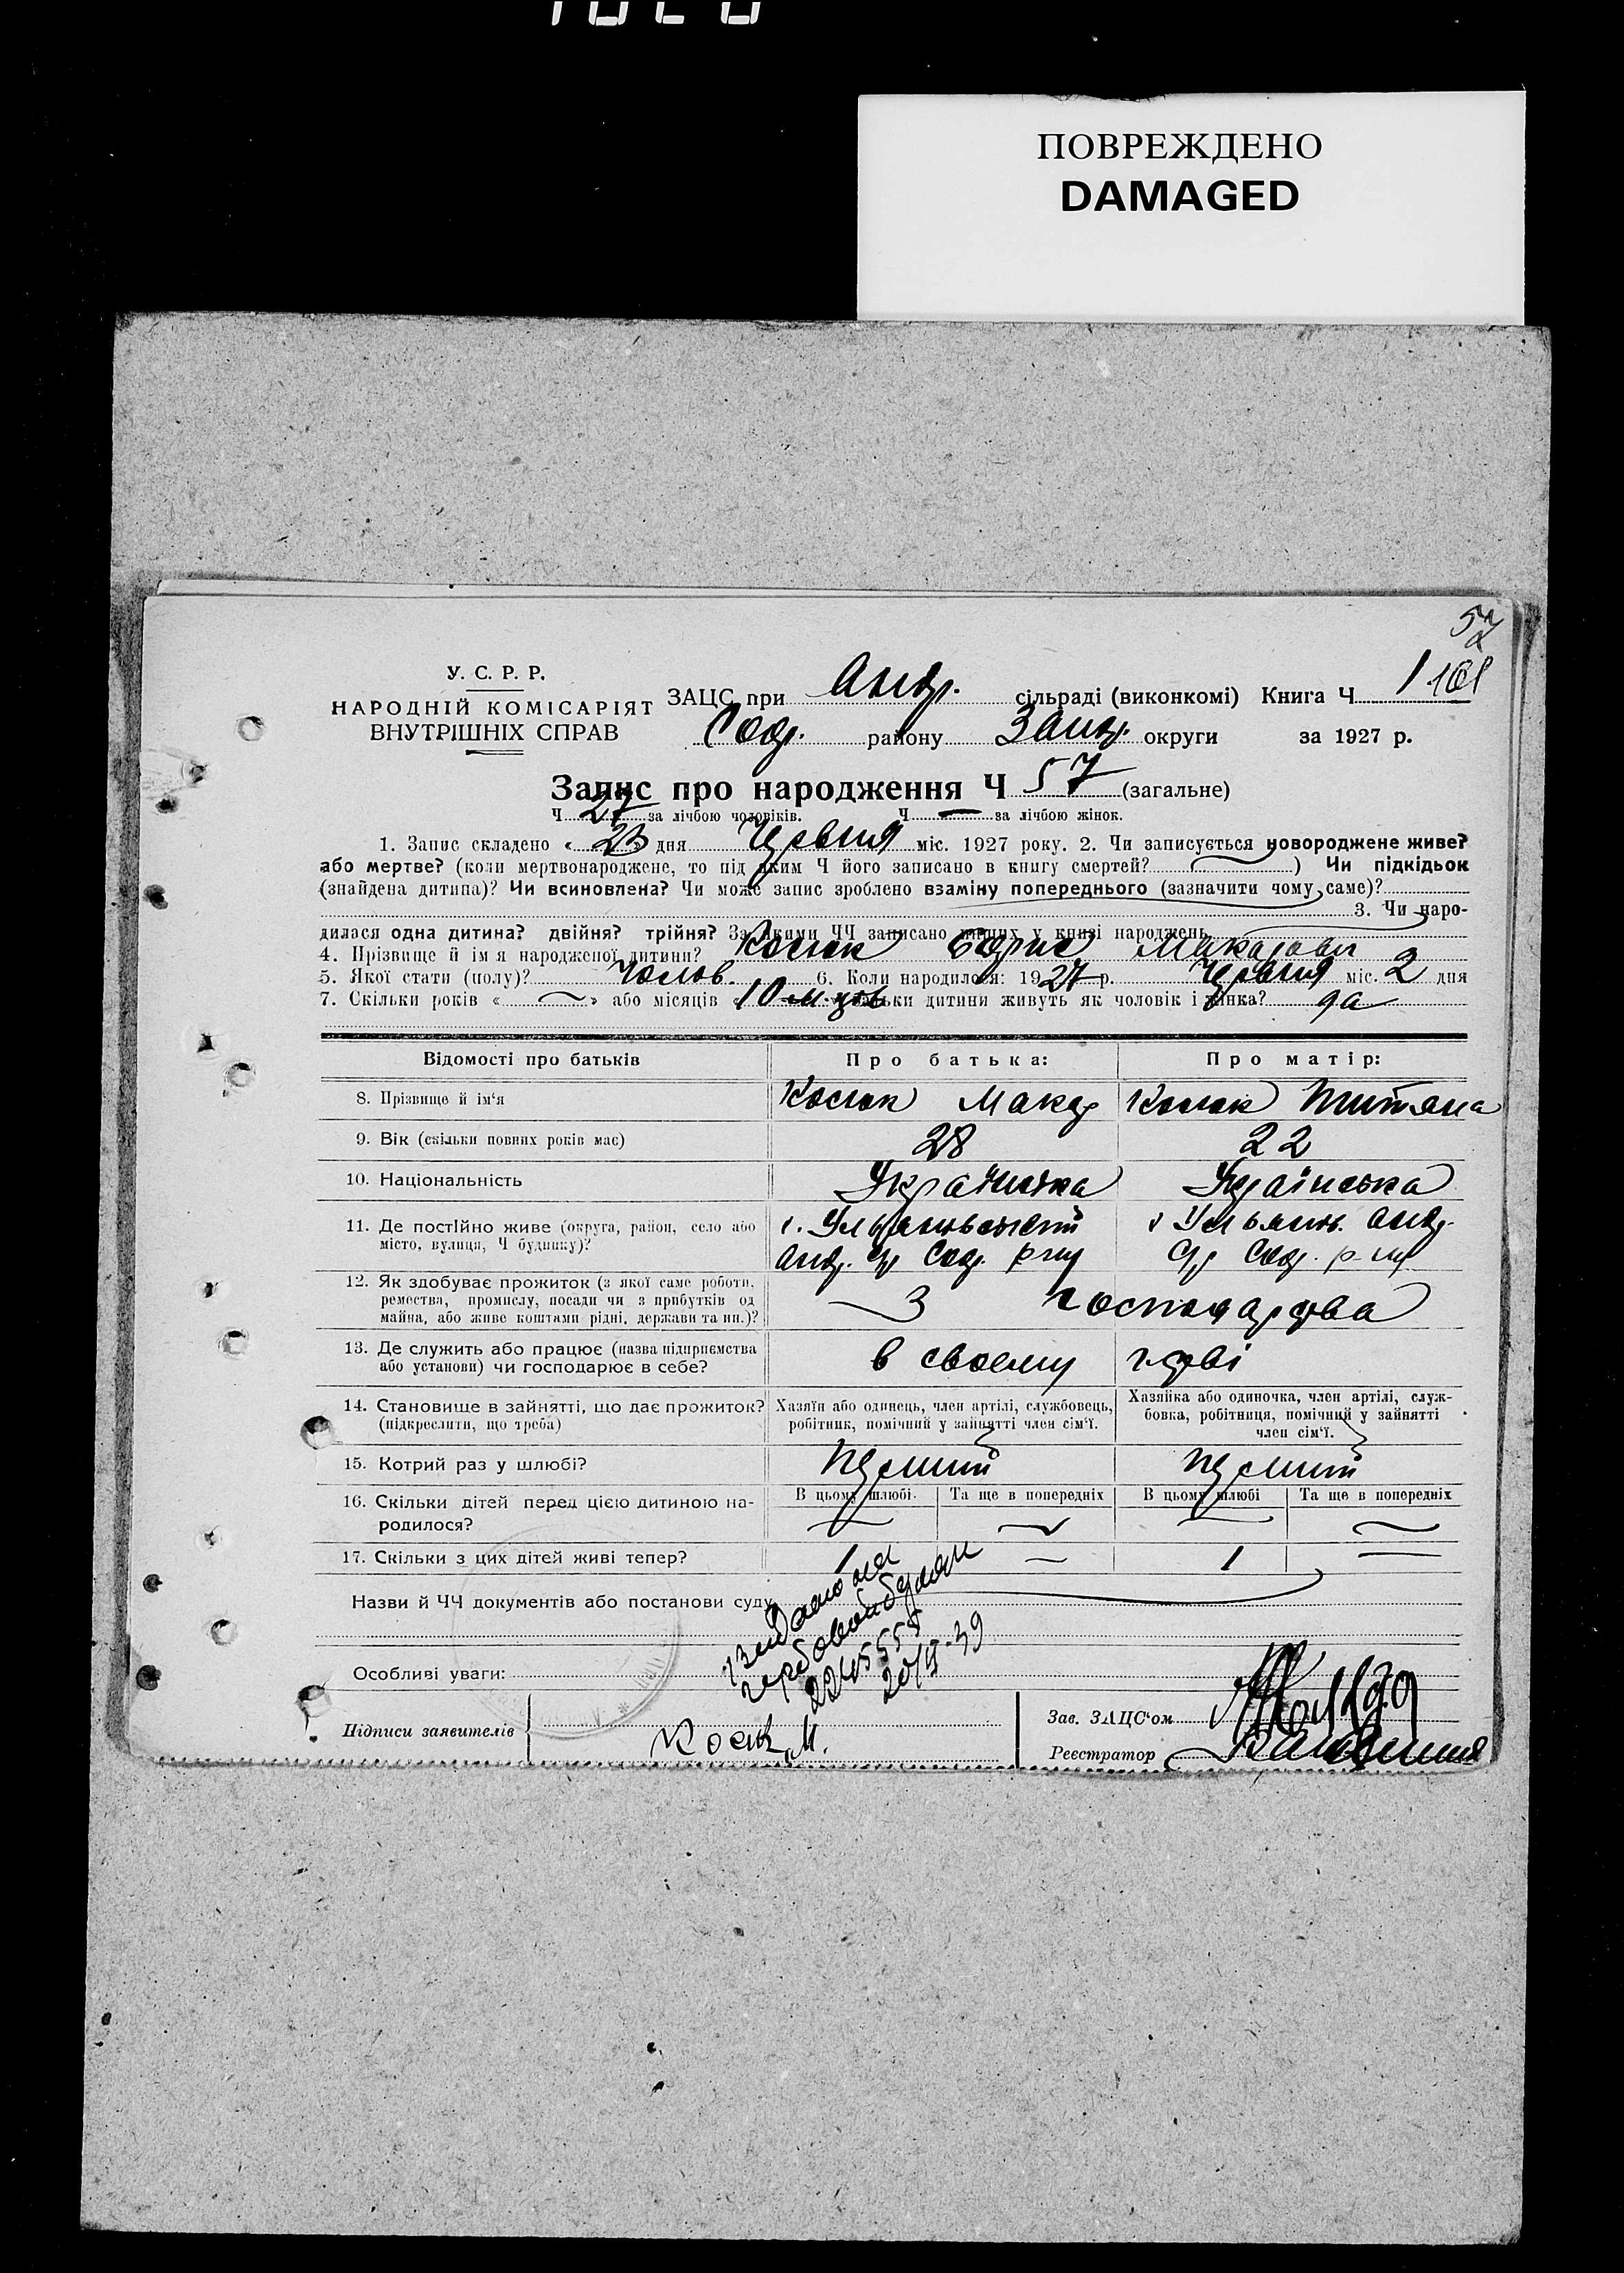 ПОВРЕЖДЕНО
DAMAGED
57
У. С. Р. Р.
НАРОДНІЙ КОМІСАРІЯТ
ВНУТРІШНІХ СПРАВ
ЗАЦС при Андр. сільраді (виконкомі) Книга Ч. 1 101
Сод. району Запор. округи за 1927 р.
Запис про народження Ч 57 (загальне)
Ч 27 за лічбою чоловіків. Ч — за лічбою жінок.
1. Запис складено « 23 » дня Червня міс. 1927 року. 2. Чи записується новороджене живе?
або мертве? (коли мертвонароджене, то під яким Ч його записано в книгу смертей? ) Чи підкідьок
(знайдена дитина)? Чи всиновлена? Чи може запис зроблено взаміну попереднього (зазначити чому саме)?
3. Чи наро-
дилася одна дитина? двійня? трійня? За якими ЧЧ записано інших у книзі народжень
4. Прізвище й ім'я народженої дитини? Косюк Борис Макарович
5. Якої стати (полу)? Чолов. 6. Коли народилося: 1927 р. Червня міс. 2 дня
7. Скільки років « — » або місяців « 10 м-ців скільки дитини живуть як чоловік і жінка? да
Відомості про батьків
Про батька:
Про матір:
8. Прізвище й ім'я Косюк Макар Косюк Титяна
9. Вік (скільки повних років має) 28 22
10. Національність Українська Українська
11. Де постійно живе (округа, район, село або
місто, вулиця, Ч будинку)?
Андр. с/р Сод. р-ну с/р Сод. р-ну
12. Як здобуває прожиток (з якої саме роботи,
ремества, промислу, посади чи з прибутків од
майна, або живе коштами рідні, держави та ин.)?
З господарства
13. Де служить або працює (назва підприємства
або установи) чи господарює в себе?
в своему г-дрві
14. Становище в зайнятті, що дає прожиток?
(підкреслити, що треба)
Хазяїн або одинець, член артілі, службовець,
робітник, помічний у зайнятті член сім'ї.
Хазяйка або одиночка, член артілі, служ-
бовка, робітниця, помічний у зайнятті
член сім'ї.
15. Котрий раз у шлюбі? перший перший
16. Скільки дітей перед цією дитиною на-
родилося?
В цьому шлюбі. Та ще в попередніх В цьому шлюбі Та ще в попередніх
17. Скільки з цих дітей живі тепер? 1 — 1 —
Назви й ЧЧ документів або постанови суду
Особливі уваги:
Підписи заявителів
Косюк М.
Зав. ЗАЦС'ом
Реєстратор